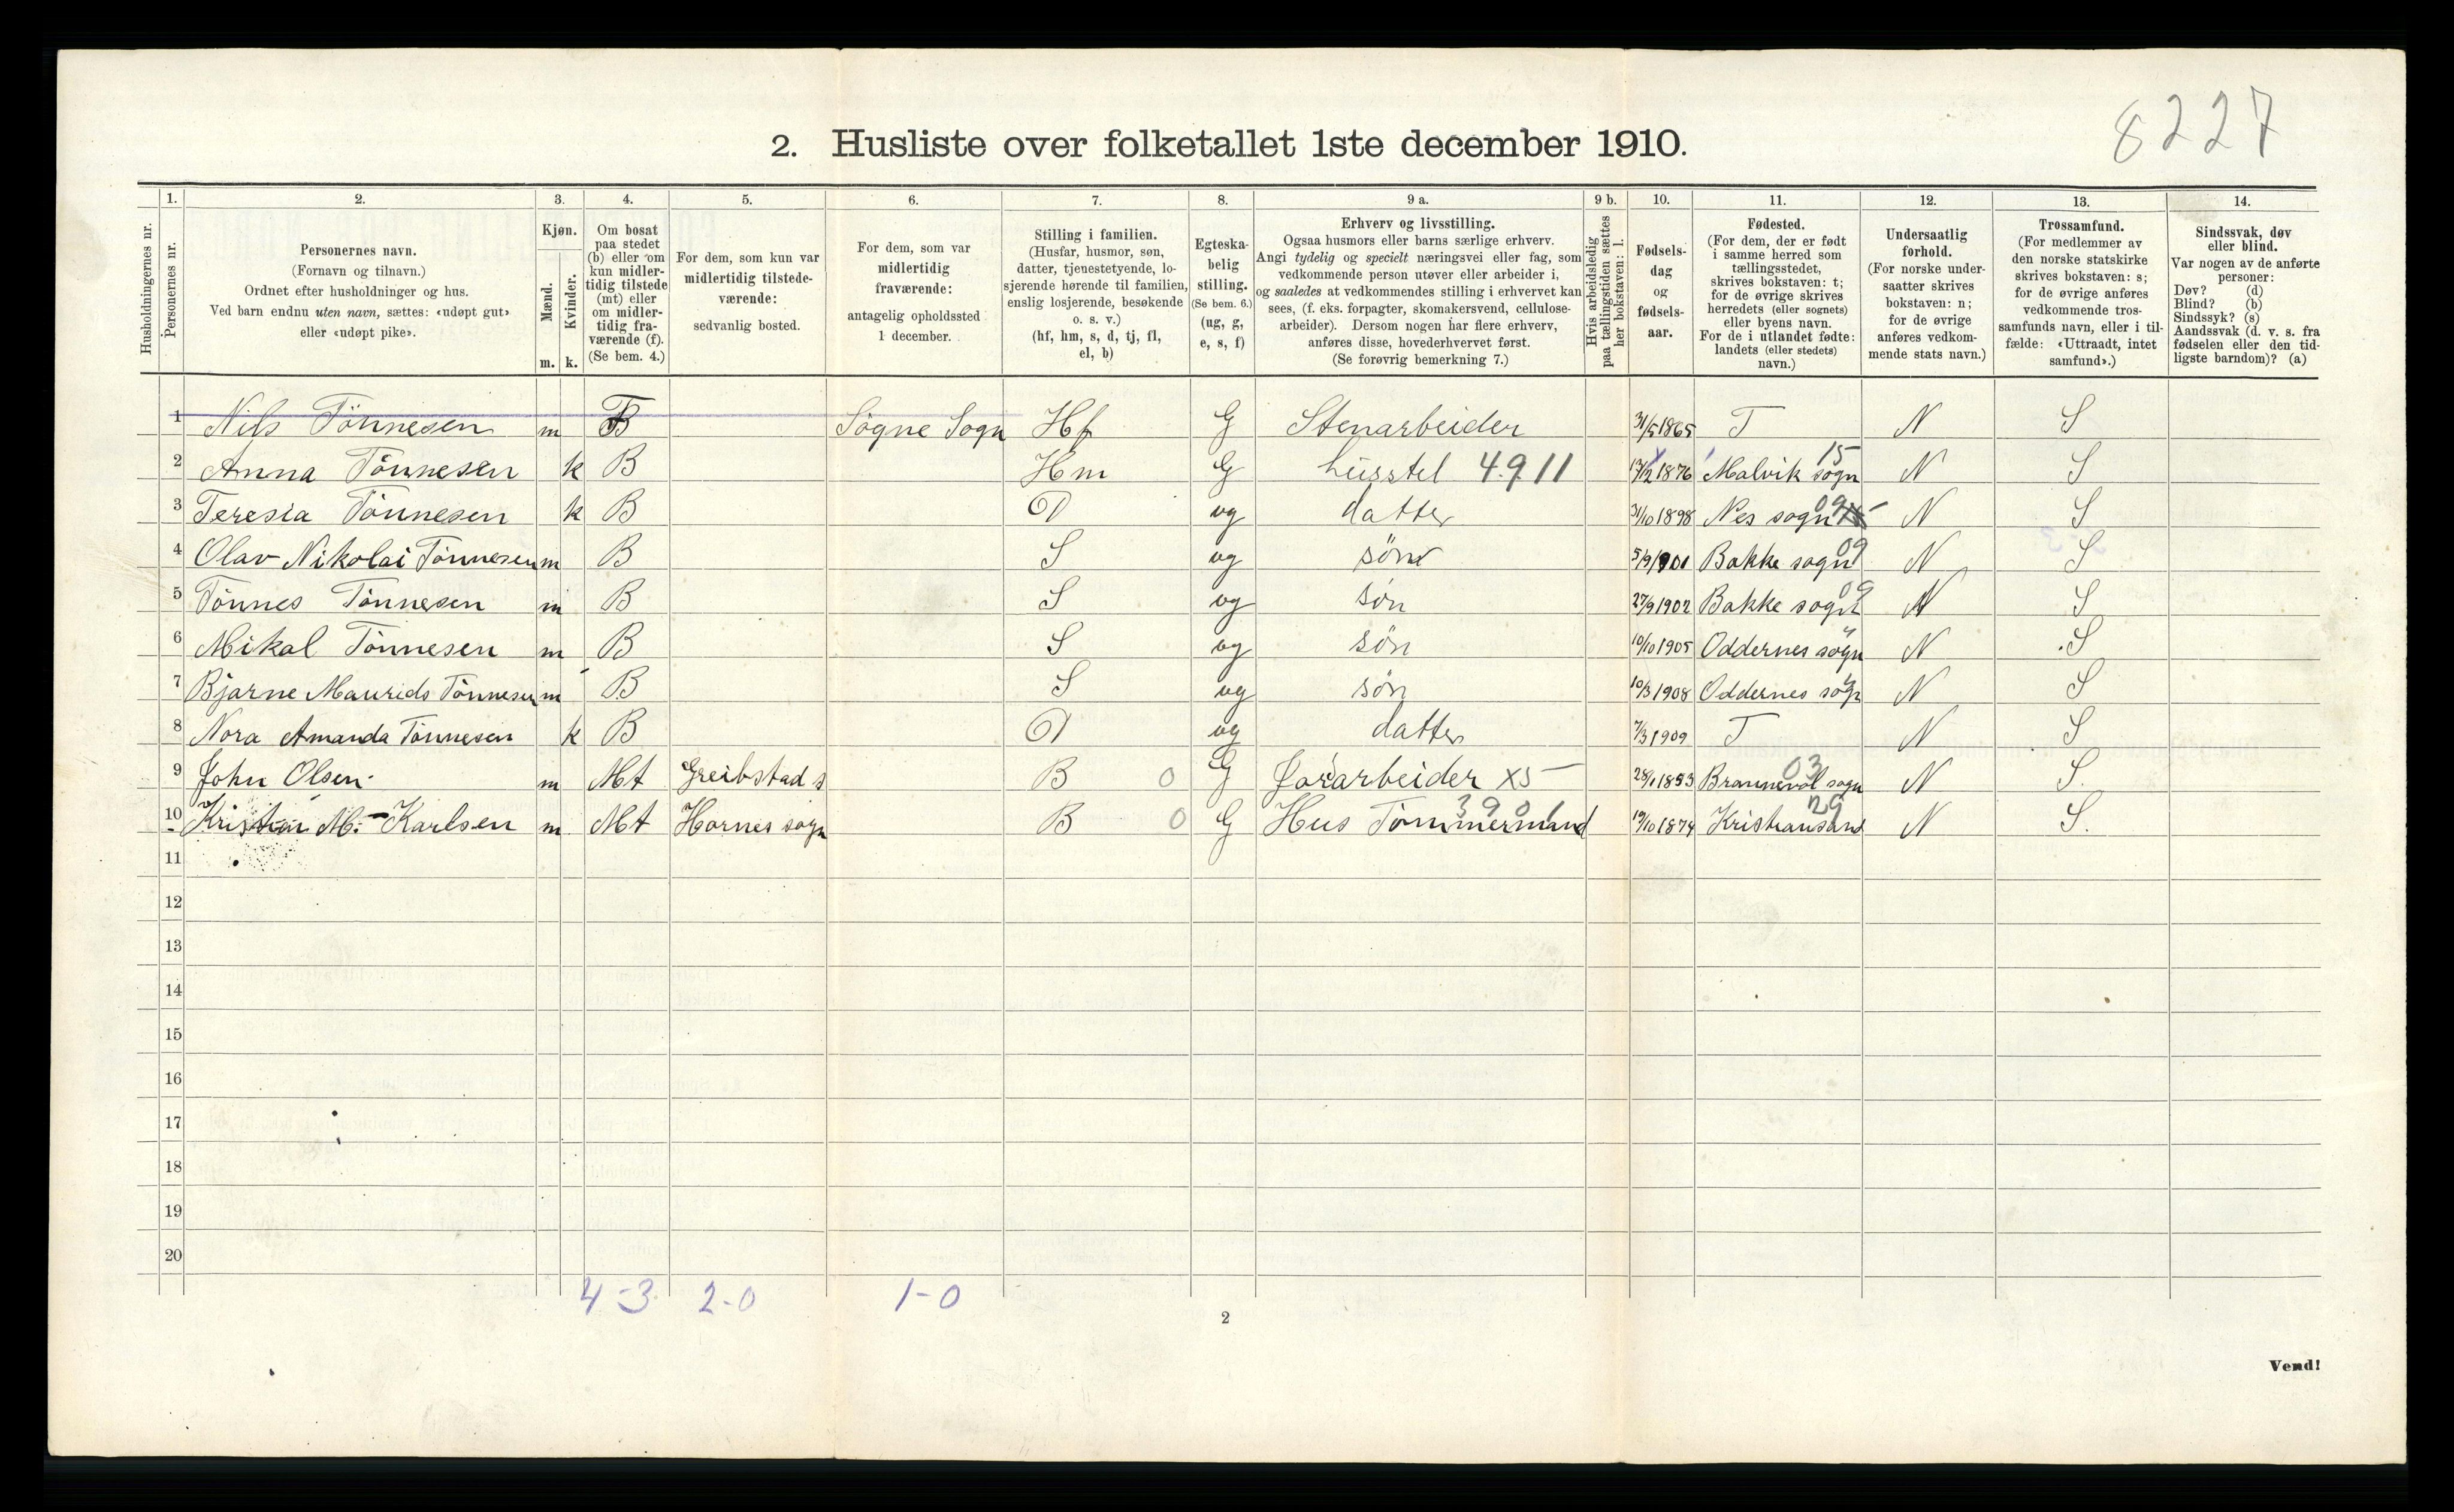 8227
2. Husliste over folketallet 1ste december 1910.
1. 2. 3. 4. 5. 6. 7. 8. 9 a. 9 b. 10. 11. 12. 13. 14.
Husholdningernes nr.
Personernes nr.
Personernes navn.
(Fornavn og tilnavn.)
Ordnet efter husholdninger og hus.
Ved barn endnu uten navn, sættes: «udøpt gut»
eller «udøpt pike».
Kjøn.
Mænd.
Kvinder.
m. k.
Om bosat
paa stedet
(b) eller om
kun midler-
tidig tilstede
(mt) eller
om midler-
tidig fra-
værende (f).
(Se bem. 4.)
For dem, som kun var
midlertidig tilstede-
værende:
sedvanlig bosted.
For dem, som var
midlertidig
fraværende:
antagelig opholdssted
1 december.
Stilling i familien.
(Husfar, husmor, søn,
datter, tjenestetyende, lo-
sjerende hørende til familien,
enslig losjerende, besøkende
o. s. v.)
(hf, hm, s, d, tj, fl,
el, b)
Egteska-
belig
stilling.
(Se bem. 6.)
(ug, g,
e, s, f)
Erhverv og livsstilling.
Ogsaa husmors eller barns særlige erhverv.
Angi tydelig og specielt næringsvei eller fag, som
vedkommende person utøver eller arbeider i,
og saaledes at vedkommendes stilling i erhvervet kan
sees, (f. eks. forpagter, skomakersvend, cellulose-
arbeider). Dersom nogen har flere erhverv,
anføres disse, hovederhvervet først.
(Se forøvrig bemerkning 7.)
Hvis arbeidsledig
paa tællingstiden sættes
her bokstaven: l.
Fødsels-
dag
og
fødsels-
aar.
Fødested.
(For dem, der er født
i samme herred som
tællingsstedet,
skrives bokstaven: t;
for de øvrige skrives
herredets (eller sognets)
eller byens navn.
For de i utlandet fødte:
landets (eller stedets)
navn.)
Undersaatlig
forhold.
(For norske under-
saatter skrives
bokstaven: n;
for de øvrige
anføres vedkom-
mende stats navn.)
Trossamfund.
(For medlemmer av
den norske statskirke
skrives bokstaven: s;
for de øvrige anføres
vedkommende tros-
samfunds navn, eller i til-
fælde: «Uttraadt, intet
samfund».)
Sindssvak, døv
eller blind.
Var nogen av de anførte
personer:
Døv? (d)
Blind? (b)
Sindssyk? (s)
Aandssvak (d. v. s. fra
fødselen eller den tid-
ligste barndom)? (a)
1 Nils Tönnesen m Søgne Sogn Hf G Stenarbeider 31/5 1865 T N S
2 Anna Tönnesen k B Hm G husstel 4.9 11 1876 Malvik sogn 15 N S
3 Teresia Tönnesen k B D ug datter 31/10 1898 Nes sogn 09 N S
4 Olav Nikolai Tönnesen m B S ug sön 5/9 1901 Bakke sogn 09 N S
5 Tönnes Tönnesen m B S ug sön 27/9 1902 Bakke sogn 09 N S
6 Mikal Tönnesen m B S ug sön 10/10 1905 Oddernes sogn N S
7 Bjarne Maurids Tönnesen m B S ug sön 10/3 1908 Oddernes sogn N S
8 Nora Amanda Tönnesen k B D ug datter 7/3 1909 T N S
9 John Olsen m Mt Greibstad s B 0 G Jorarbeider x5 28/1 1853 sogn 03 N S.
10 Kristian M. Karlsen m Mt Hornes sogn B 0 G Hus Tömmermand 3901 19/10 1874 Kristiansand 29 N S.
11
12
13
14
15
16
17
18
19
20
4-3 2-0 1-0
2
Vend!